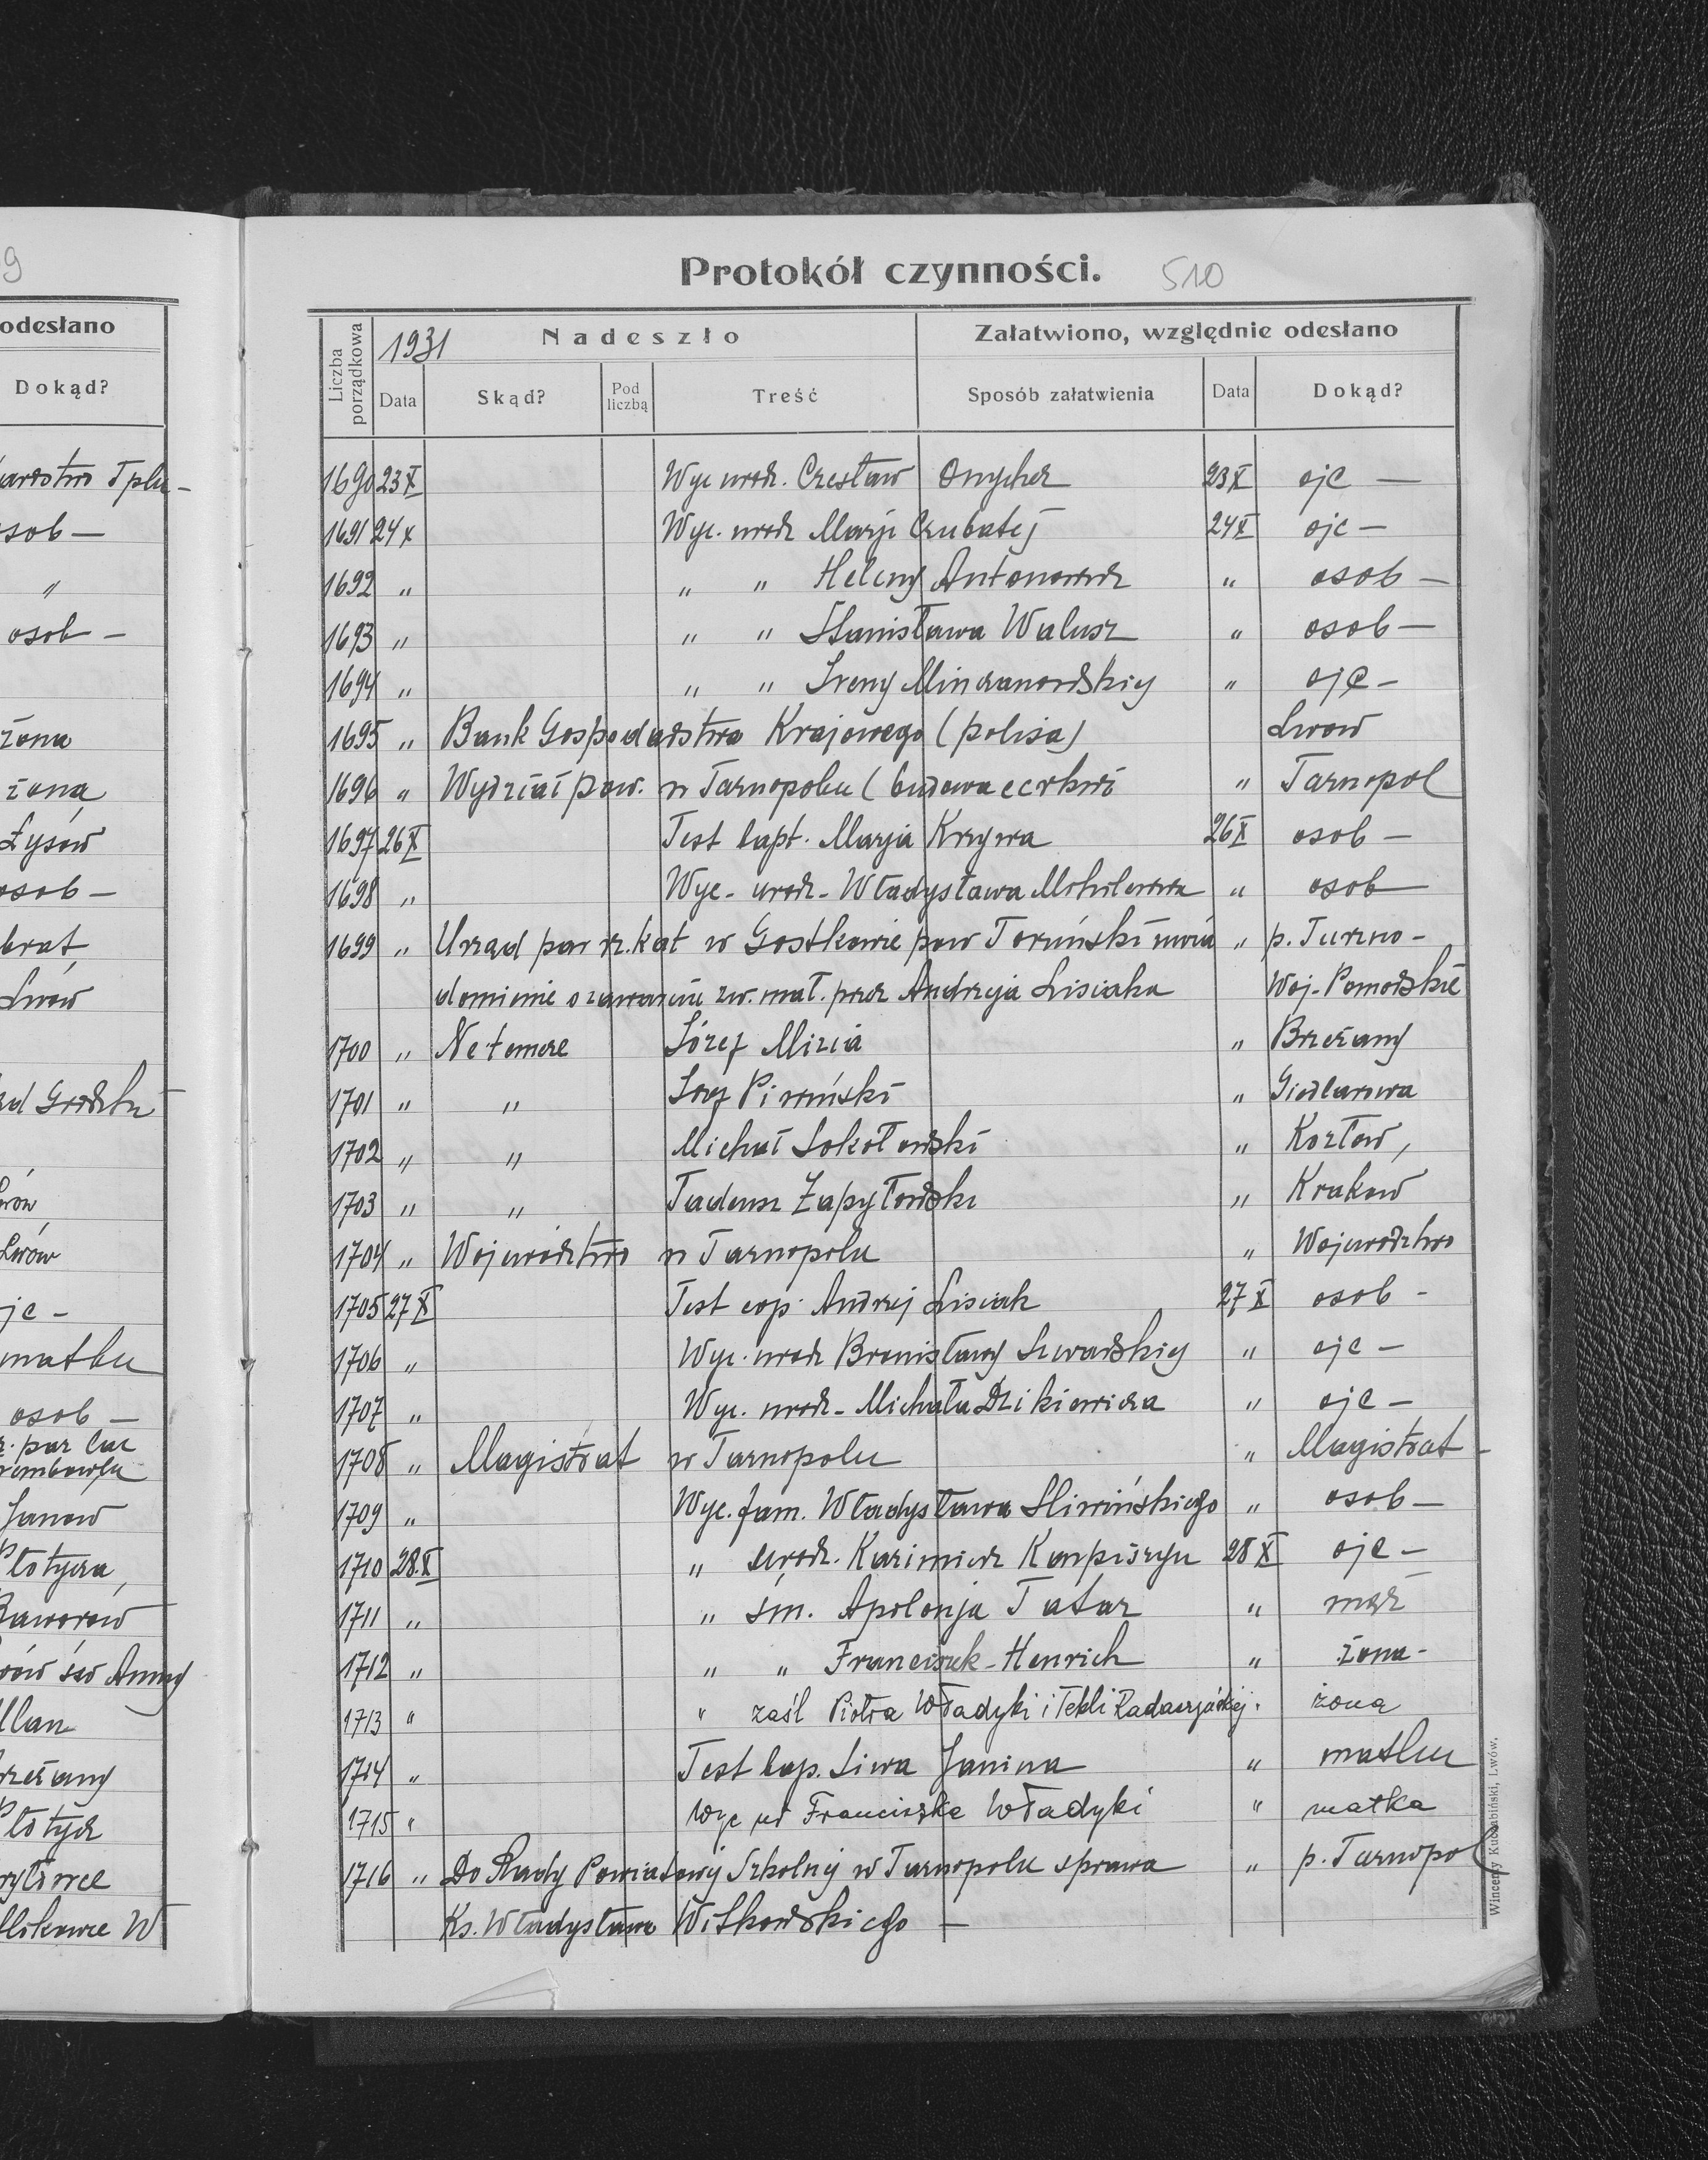 9
odesłano
Dokąd?
osob —
"
osob —
żona
żoną
Łysów
osob —
brat
Lwów
Lwów
je —
matka
osob —
r. par łac
Janow
Płotycza,
Zaworów
św Anny
Płotycz
Protokół czynności. 510
Liczba porządkowa
1931 Nadeszło Załatwiono, względnie odesłano
Data Skąd? Pod liczbą Treść Sposób załatwienia Data Dokąd?
1690 23 X Wyc urodz. Czesław 23 X ojc —
1691 24 X Wyc. urodz Marji Czubatej 24 X ojc —
1692 " " " Heleny Antonowicz " osob —
1693 " " " Stanisława Walusz " osob —
1694 " " " Ireny " ojc —
1695 " Bank Gospodarstwa Krajowego (polisa) Lwow
1696 " Wydział pow. w Tarnopolu (budowa cerkwi " Tarnopol
1697 26 X Test bapt. Marja Krzywa 26 X osob —
1698 " Wyc. urodz. Władysława " osob
1699 " Urząd par rz. kat w Gostkowie pow Toruński uwia " p. Turzno -
domienie o zawarciu zw. mał. przez Andrzeja Lisiaka Woj. Pomorskie
1700 " Ne temere Józef Mizia " Brzeżany
1701 " " Józef Piwiński "
1702 " " Michał Sokołowski " Kozłow,
1703 " " Tadeusz Zapytowski " Krakow
1704 " Wojewodztwo w Tarnopolu " Wojewodztwo
1705 27 X Test cop. Andrzej Lisiak 27 X osob -
1706 " Wyc. urodz Bronisławy " ojc —
1707 " Wyc. urodz. Michała Dzikiewicza " ojc —
1708 " Magistrat w Tarnopolu " Magistrat -
1709 " Wyc. fam. Władysława Śliwińskiego " osob —
1710 28 X " urodz. Kazimierz 28 X ojc —
1711 " " śm. Apolonja Tatar " mąż
1712 " " " Franciszek Henrich " żona -
1713 " " zaśl Piotra Władyki i Tekli żona
1714 " Test bap. Siwa Janina " matka
1715 " Wyc ur Franciszka Władyki " matka
1716 " Do Rady Powiatowej Szkolnej w Tarnopolu sprawa " p. Tarnopol
Ks. Władysława Witkowskiego —
Wincenty Kuczabiński, Lwów.